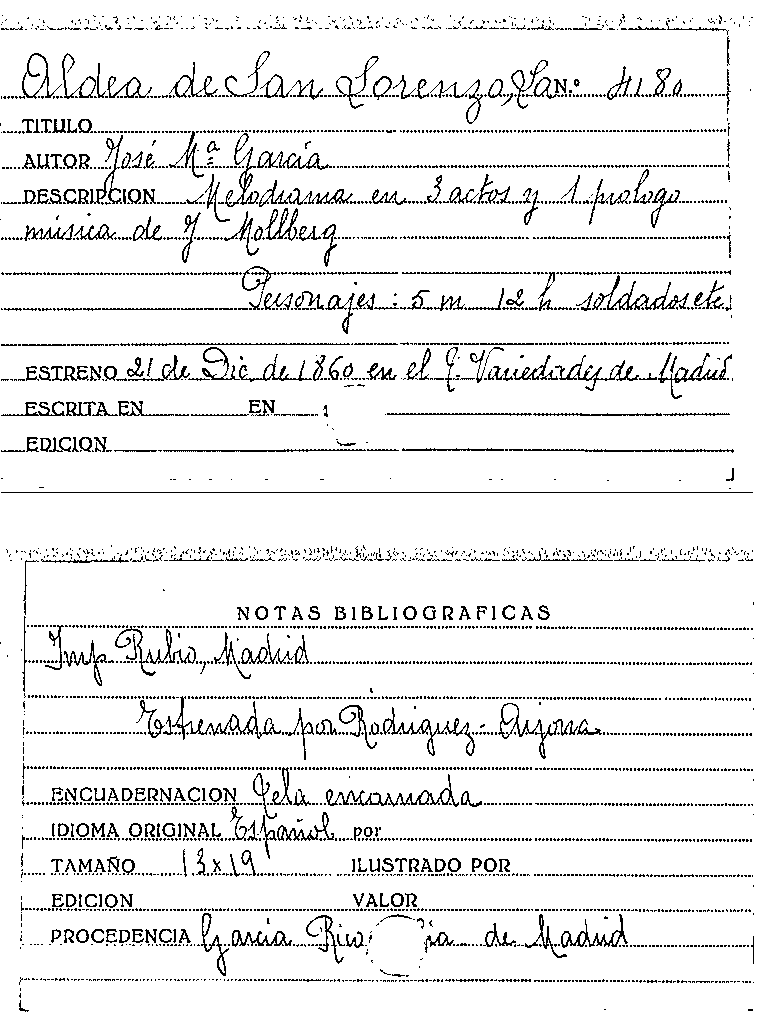 Aldea de San Lorenzo, La N.º 4180
TITULO
AUTOR José Mª García
DESCRIPCION Melodrama en 3 actos y 1 prologo
música de J Mollberg
Personajes: 5 m 12 h soldados etc.
ESTRENO 21 de Dic. de 1860 en el T. Variedades de Madrid
ESCRITA EN EN
EDICION
NOTAS BIBLIOGRAFICAS
Imp Rubio, Madrid
Estrenada por Rodriguez - Arjona
ENCUADERNACION Tela encarnada
IDIOMA ORIGINAL Español por
TAMAÑO 13x19 ILUSTRADO POR
EDICION VALOR
PROCEDENCIA García Rico de Madrid